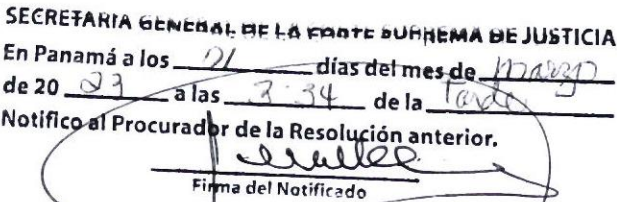 SECRETARIA GENERAL DE LA CORTE SUPREMA DE JUSTICIA
En Panamá a los 21 días del mes de marzo
de 20 23 a las 3:34 de la Tarde
Notifico al Procurador de la Resolución anterior.
Firma del Notificado